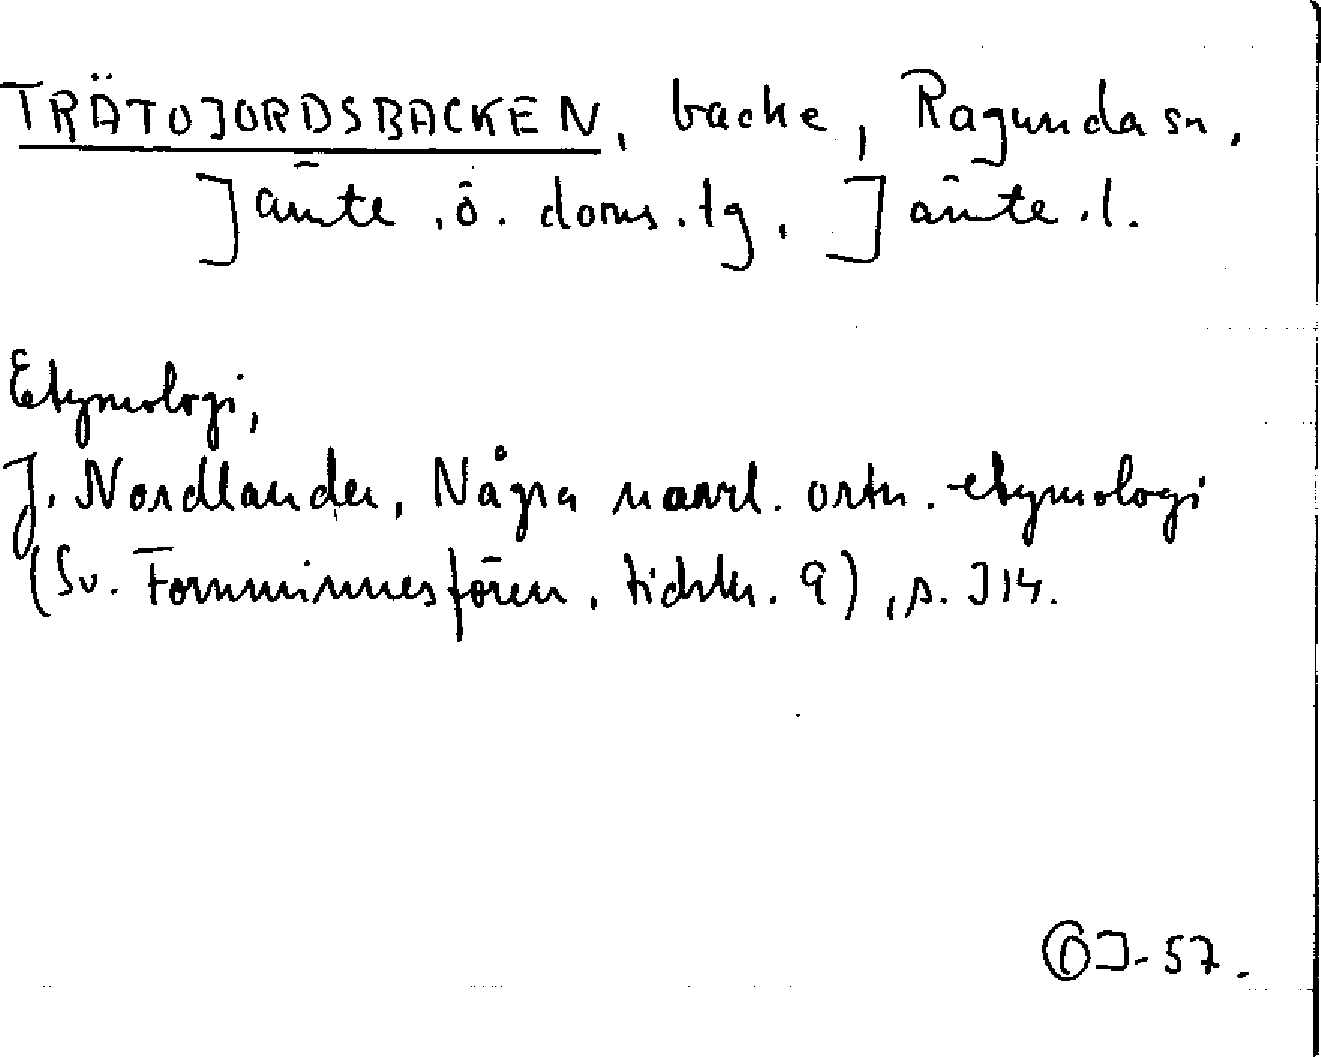 TRÄTOJORDSBACKEN, backe, Ragunda sn,
Jämte .ö. doms.tg, Jämte.l.
Etymologi,
J. Nordlander, Några norrl. ortn. etymologi
(Sv. Fornminnesfören, tidskr. 9), s. 314.